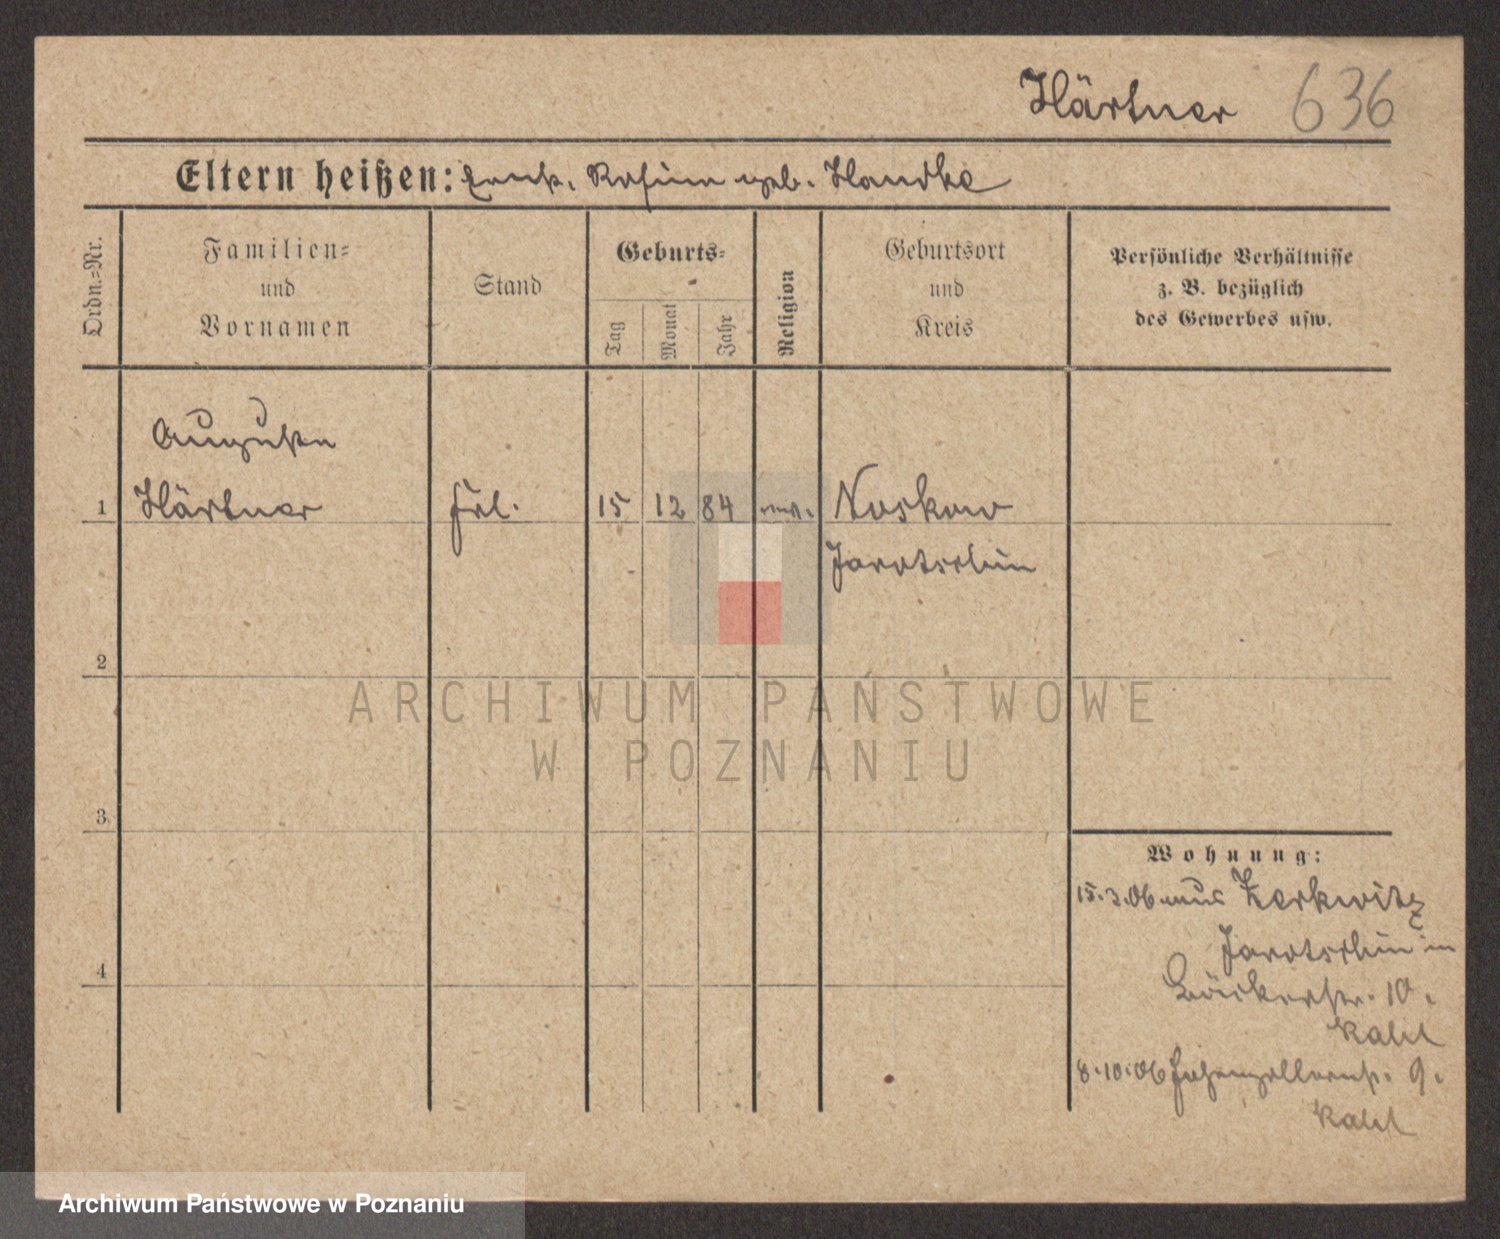 Härtner 636
Eltern heißen: Ernst. Rosina geb. Handke
Ordn.=Nr.
Familien=
und
Vornamen
Stand
Geburts=
Tag
Monat
Jahr
Religion
Geburtsort
und
Kreis
Persönliche Verhältnisse
z. B. bezüglich
des Gewerbes usw.
Auguste
1 Härtner Frl. 15 12 84 ev. Noskow
Jarotschin
2
3
4
ARCHIWUM PAŃSTWOWE
W POZNANIU
Wohnung:
15.3.06 aus Zerkwitz
Jarotschin in
Bäckerstr. 10.
8.10.06 Hohenzollernstr. 9.
Archiwum Państwowe w Poznaniu